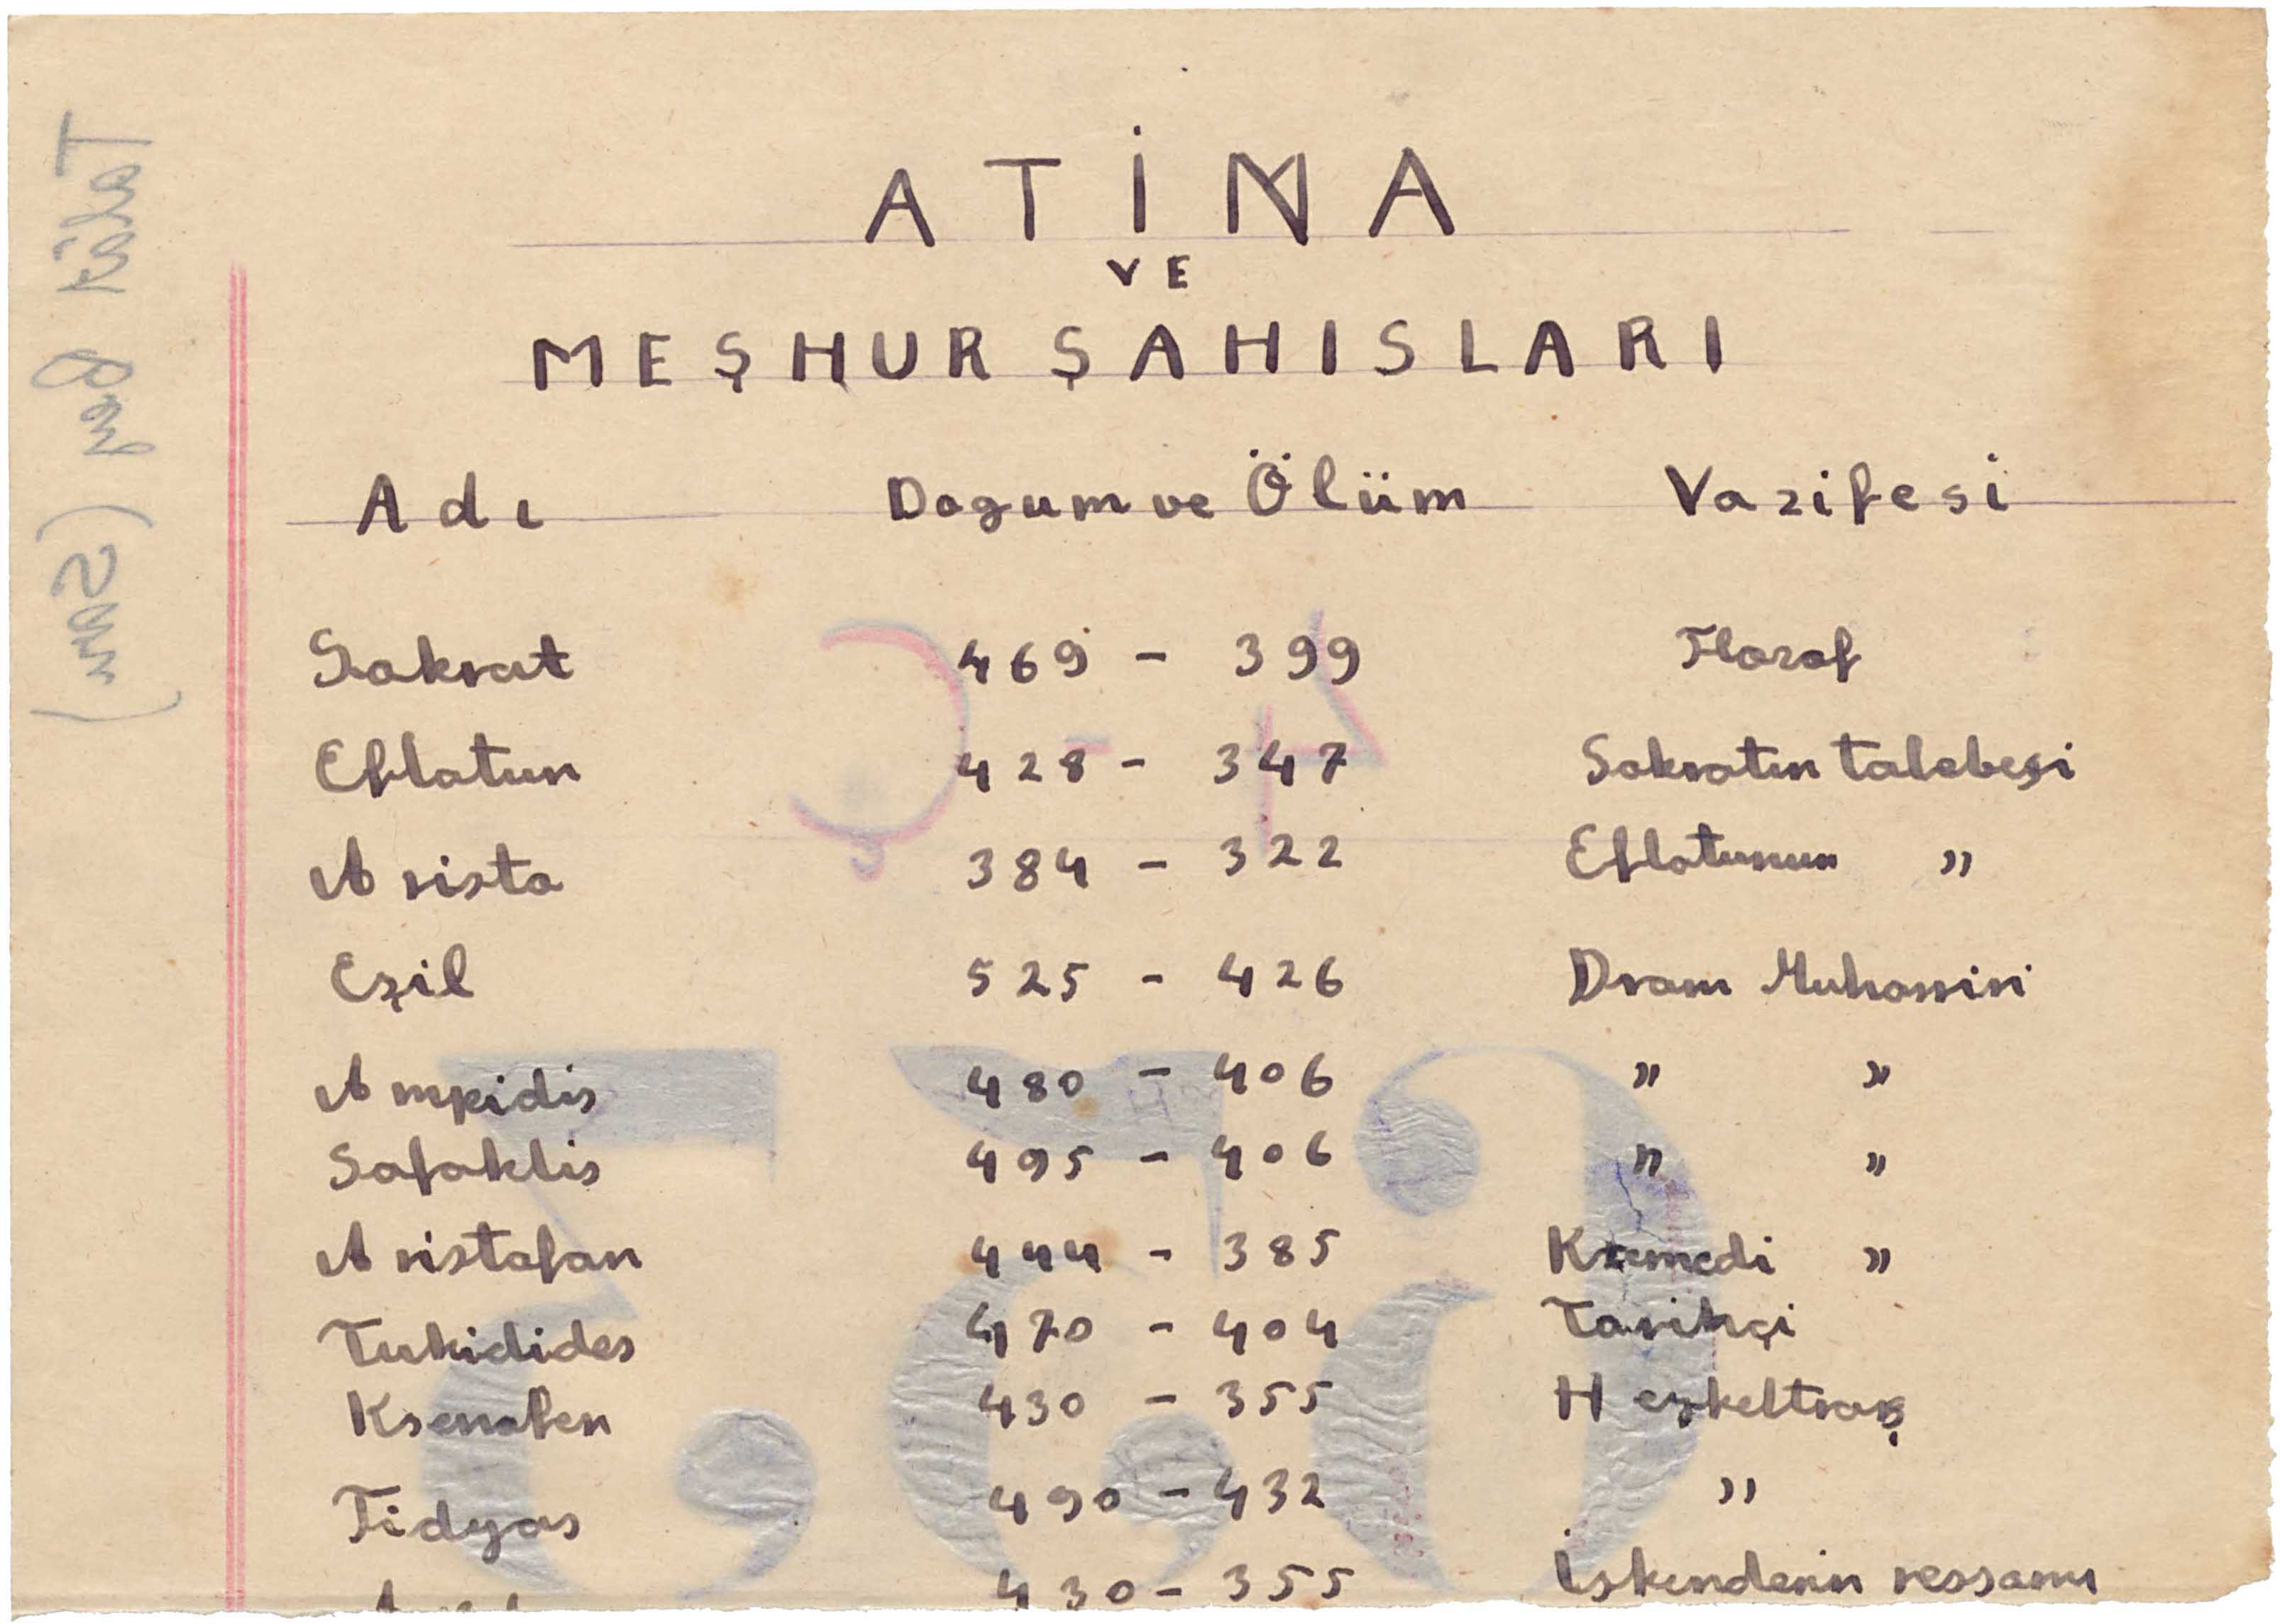 ATİNA
VE
MEŞHUR ŞAHISLARI
Adı Dogum ve Ölüm Vazifesi
Sokrat 469 - 399 Flozof
Eflatun 428 - 347 Sokratın talebesi
Aristo 384 - 322 Eflatunun "
Eşil 525 - 426 Dram Muharriri
480 - 406 " "
Sofoklis 495 - 406 " "
Aristofan 444 - 385 Komedi "
Tukidides 470 - 404 Tarihçi
Ksenofen 430 - 355 Heykeltraş
Fidyas 490 - 432 "
430 - 355 İskenderin ressamı